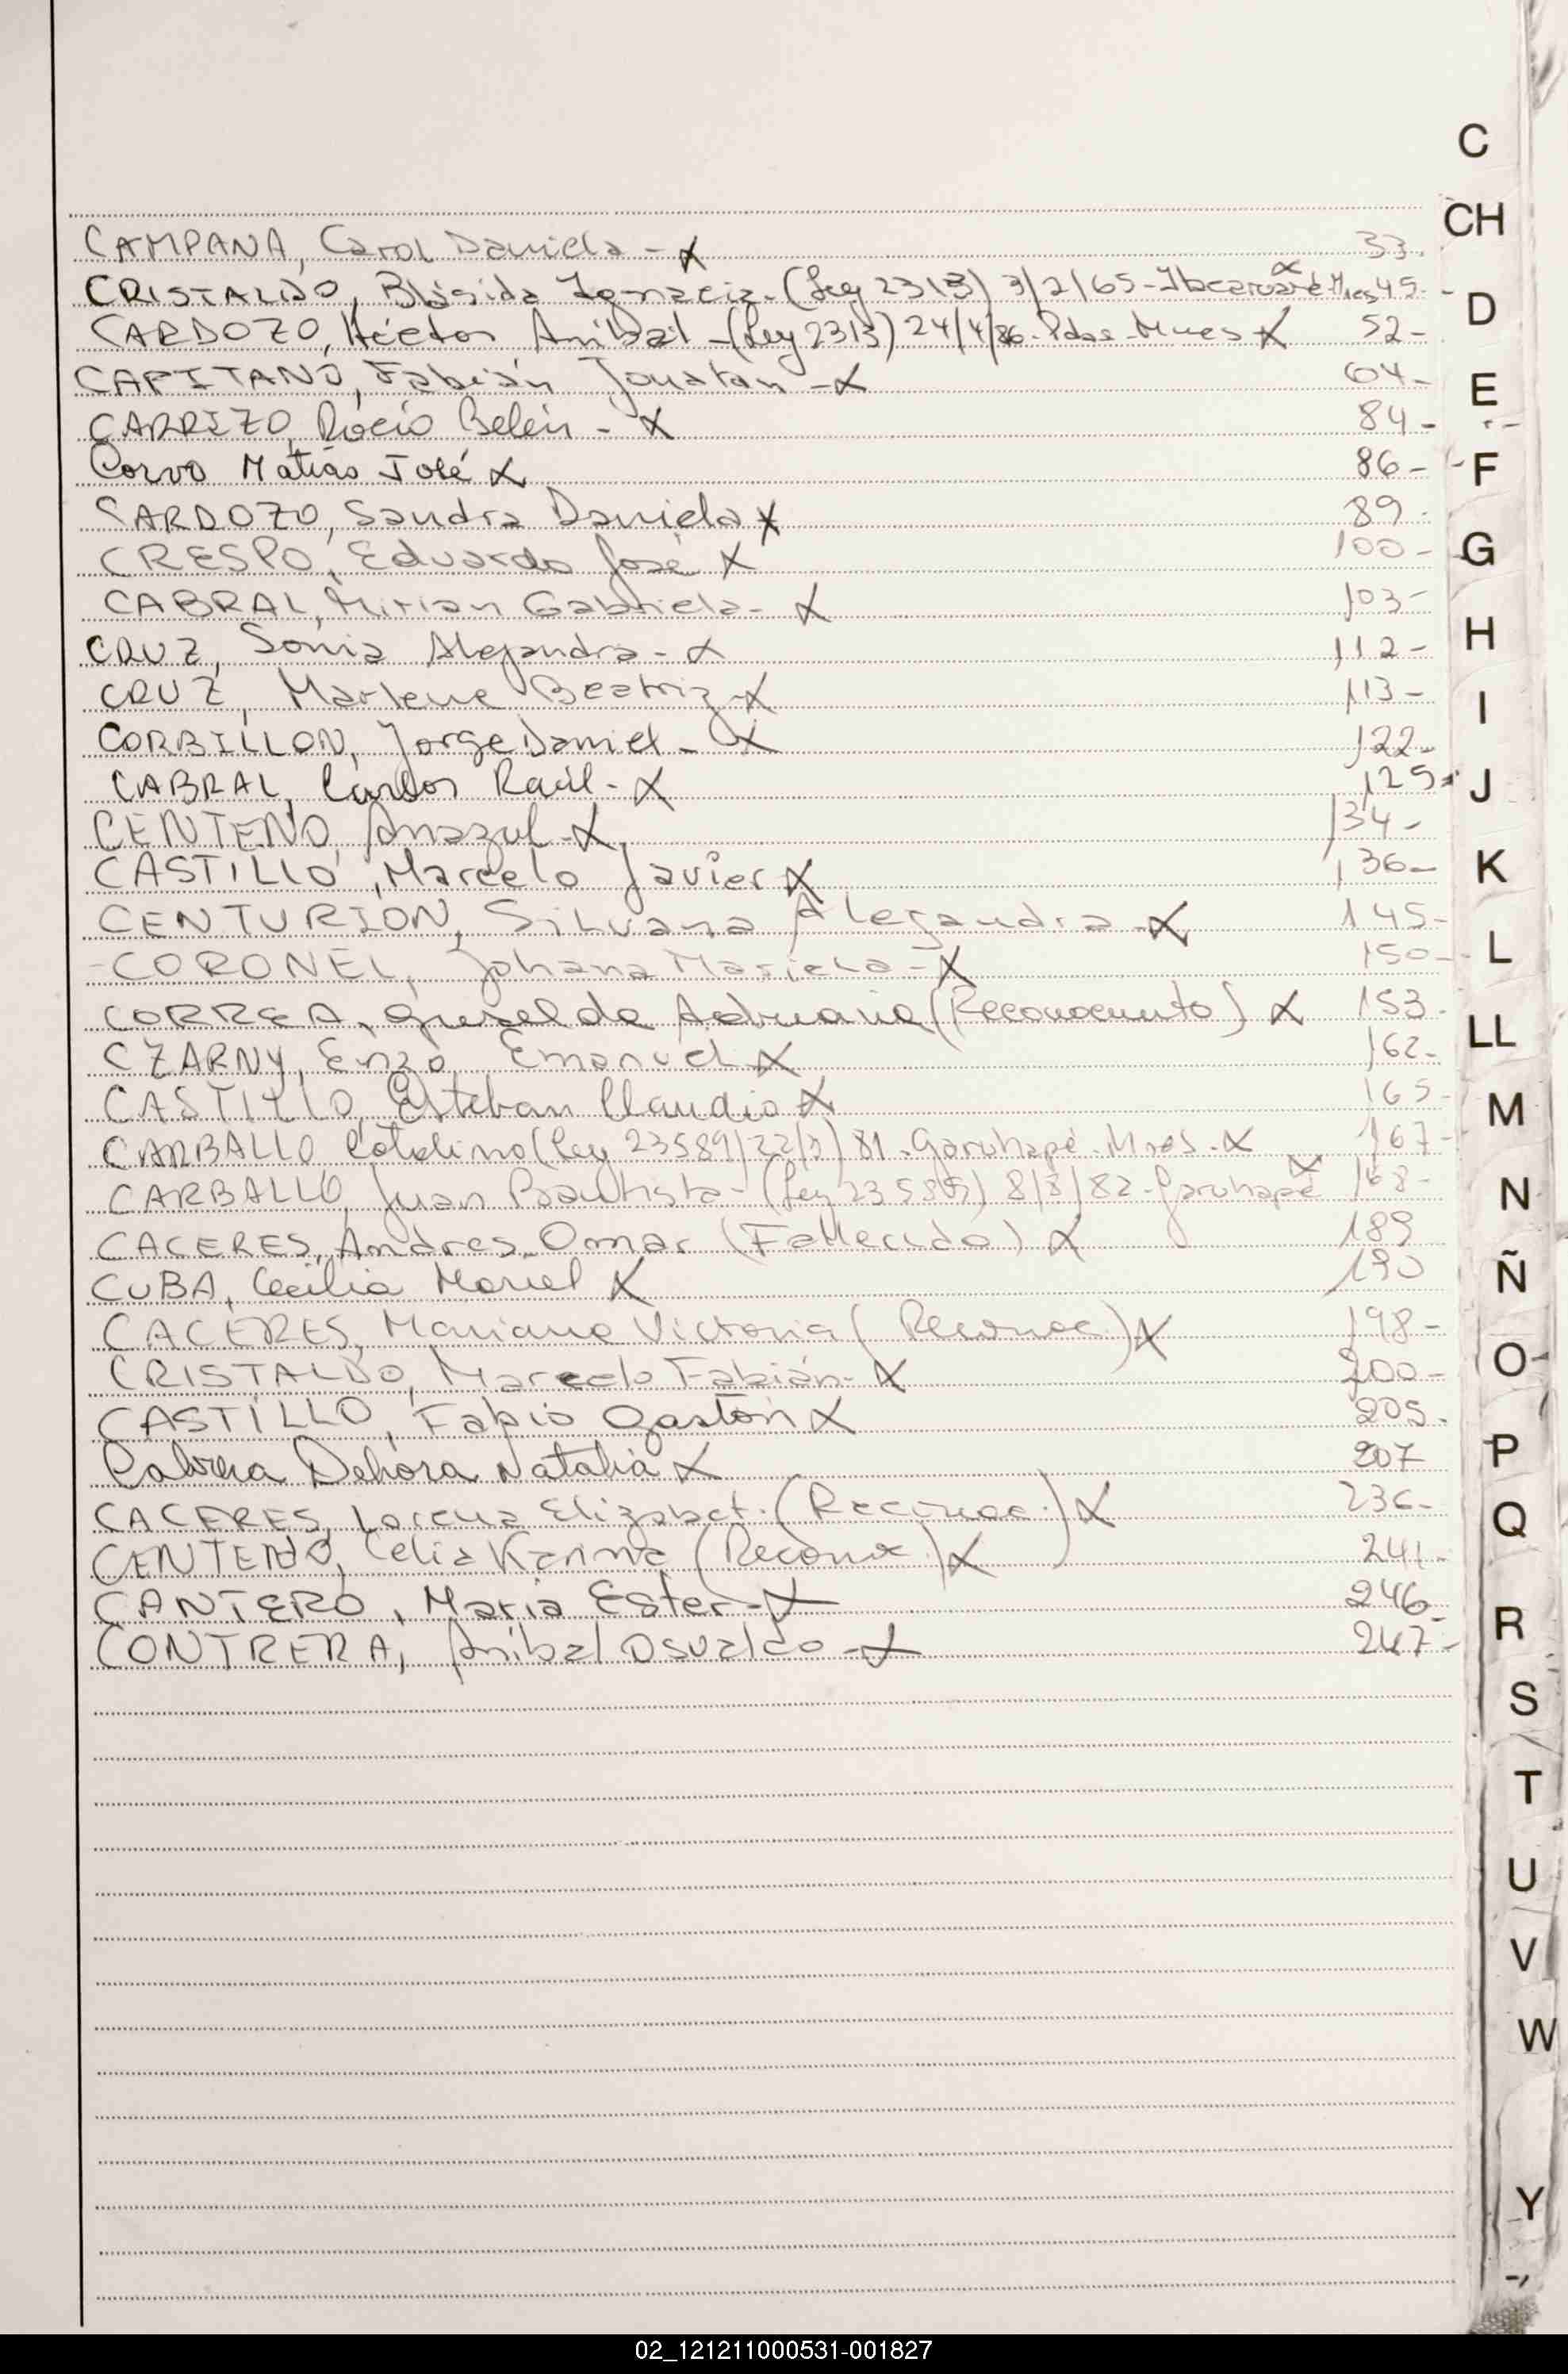 C
CH
CAMPANA, Carol Daniela - X 33.
CRISTALDO, Blásida Ignacia - (Ley 2313) 3/2/65 - X 45-
D
CARDOZO, Héctor Aníbal - (Ley 2313) 24/4/86 - Pdas - Mnes X 52-
CAPITANO, Fabián Jonatan - X 64-
E
CARRIZO, Rocío Belén - X 84-
Corvo Matías José X 86-
F
CARDOZO, Sandra Daniela X 89-
CRESPO, Eduardo José X 100-
G
CABRAL, Mirian Gabriela - X 103-
CRUZ, Sonia Alejandra - X 112-
H
CRUZ, Marlene Beatriz - X 113-
I
CORBILLON, Jorge Daniel - X 122-
CABRAL, Carlos Raúl - X 125-
J
CENTENO, Anazul - X 134-
CASTILLO, Marcelo Javier X 136-
K
CENTURION, Silvana Alejandra - X 145-
- CORONEL, Johana Mariela - X 150-
L
CORREA, Griselda Adriana (Reconocimiento) X 153-
LL
CZARNY, Enzo Emanuel X 162-
CASTILLO, Esteban Claudio X 165-
M
CARBALLO Catalino (Ley 23589) 22/9/81 - Garuhapé - Mnes - X 167-
CARBALLO, Juan Bautista - (Ley 23589) 8/8/82 - Garuhapé X 168-
N
CACERES, Andres Omar (Fallecido) X 189
CUBA, Cecilia Mariel X 190
Ñ
CACERES, Mariana Victoria (Reconoc.) X 198-
CRISTALDO, Marcelo Fabián - X 200-
O
CASTILLO, Fabio Gastón X 205-
Cabrera Débora Natalia X 207
P
CACERES, Lorena Elizabet. (Reconoc.) X 236-
Q
CENTENO, Celia Karina (Reconoc.) X 241-
CANTERO, Maria Ester - X 246-
R
CONTRERA, Anibal Osvaldo - X 247-
S
T
U
V
W
Y
02_121211000531-001827